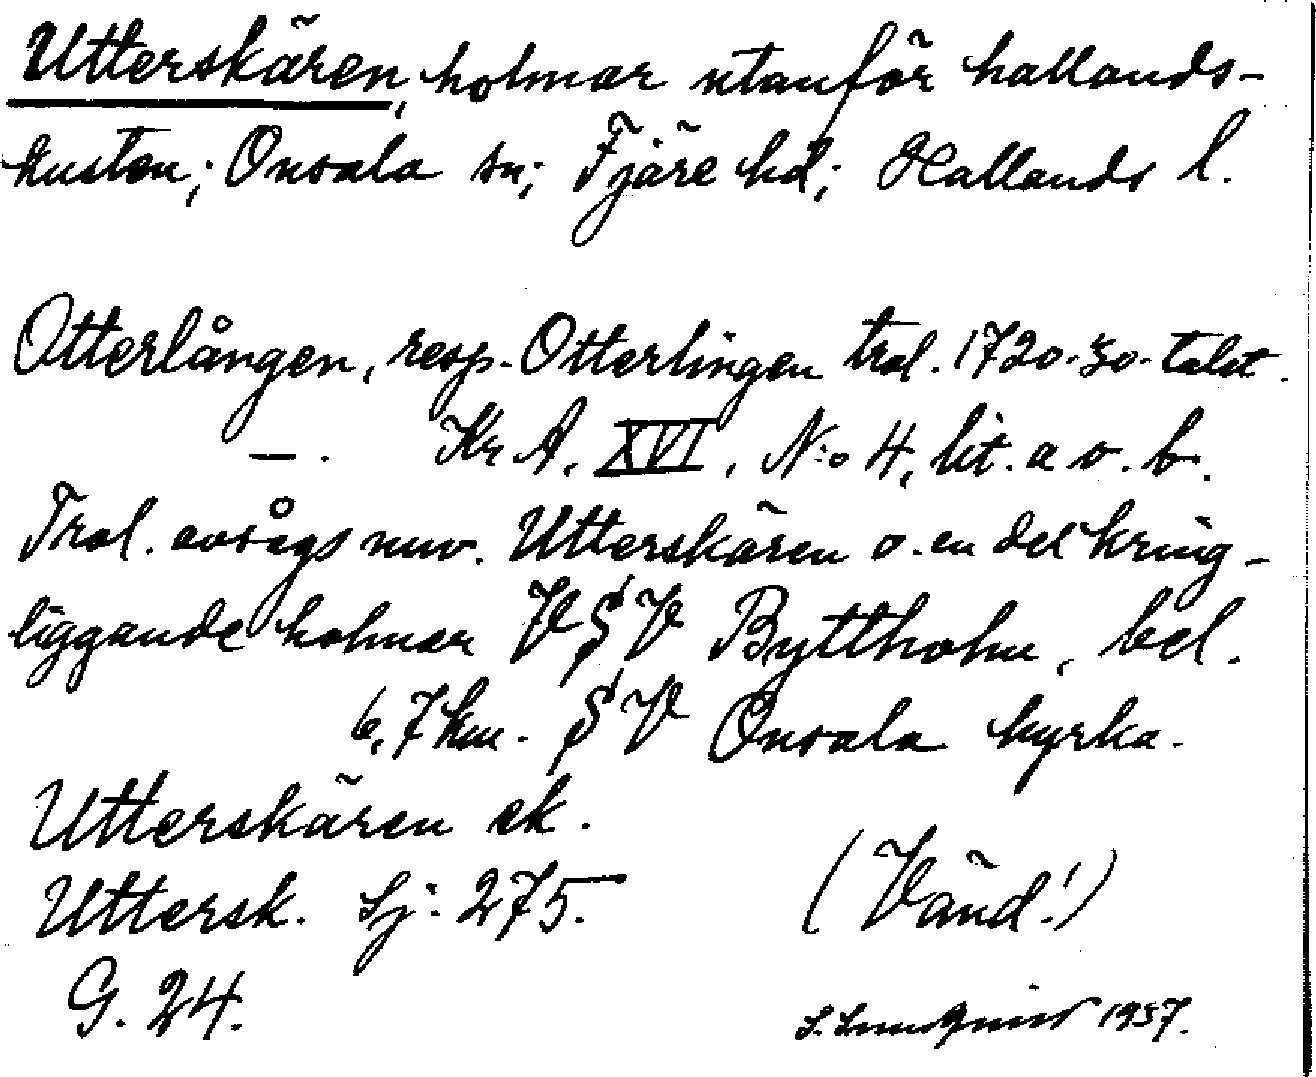 Utterskären, holmar utanför hallands-
kusten; Onsala sn; Fjäre hd; Hallands l.
Otterlången, resp. Otterlingen trol. 1720-30-talet.
—. Kr A. XVI, N:o 4, lit. a o. b.
Trol. avsågs nuv. Utterskären o. en del kring-
liggande holmar V§V Byttholm, bel.
6,7 km. §V Onsala kyrka.
Utterskären ek.
Uttersk. Sj: 275.
(Vänd!)
G. 24.
1957.